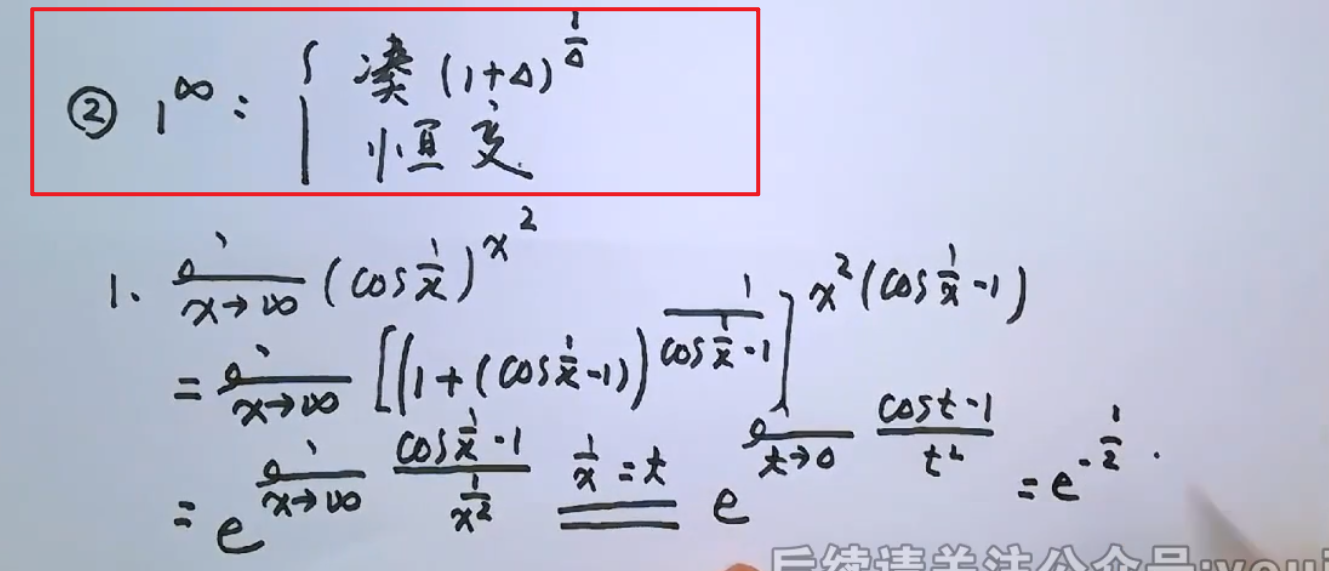 ② 1^∞: { 凑 (1+Δ)^{1/Δ}
恒变.
1. lim_{x→∞} (cos 1/x)^{x^2}
= lim_{x→∞} [(1+(cos 1/x -1))^{1/(cos 1/x -1)}]^{x^2(cos 1/x -1)}
= e^{lim_{x→∞} (cos 1/x -1)/(1/x^2)} \xlongequal{1/x = t} e^{lim_{t→0} (cos t -1)/t^2} = e^{-1/2}.
后续请关注公众号:youj